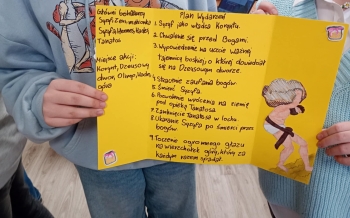 Główni bohaterowie:
Syzyf, Zeus
Syzyf, Hermes, Hades,
Tanatos
Miejsce akcji:
Korynt, Zeusowy
dwór, Olimp, Hades,
Plan Wydarzeń
1. Syzyf jako władca Koryntu.
2. Chwalenie się przed Bogami.
3. Wypowiedzenie na uczcie ważnej
tajemnicy boskiej, o której dowiedział
się na Zeusowym dworze.
4. Stracenie zaufania bogów
5. Śmierć Syzyfa
6. Ponowne wrócenie na ziemię
pod opieką Tanatosa
7. Zamknięcie Tanatosa w lochu.
8. Ukaranie Syzyfa po śmierci przez
bogów
9. Toczenie ogromnego głazu
na wierzchołek góry, który za
każdym razem spadał.